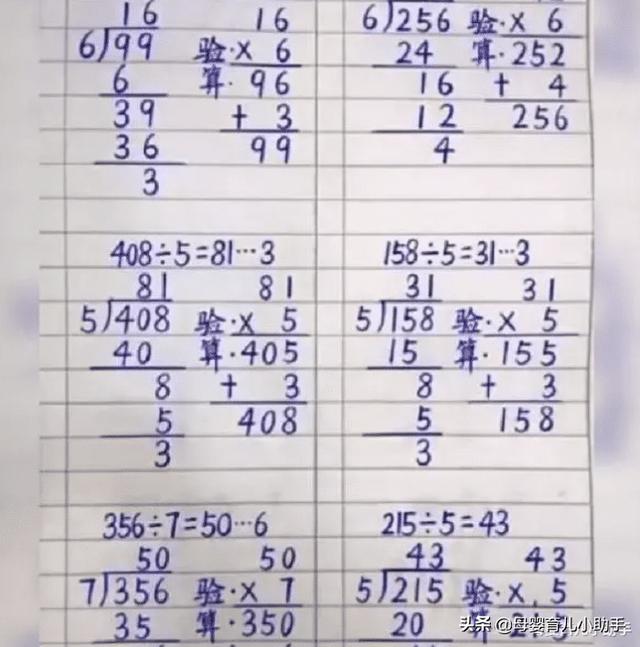 16 16
6)99 验·× 6
6 算·96
39 + 3
36 99
3
6)256 验·× 6
24 算·252
16 + 4
12 256
4
408÷5=81…3
81 81
5)408 验·× 5
40 算·405
8 + 3
5 408
3
158÷5=31…3
31 31
5)158 验·× 5
15 算·155
8 + 3
5 158
3
356÷7=50…6
50 50
7)356 验·× 7
35 算·350
215÷5=43
43 43
5)215 验·× 5
20 算·215
头条 @母婴育儿小助手